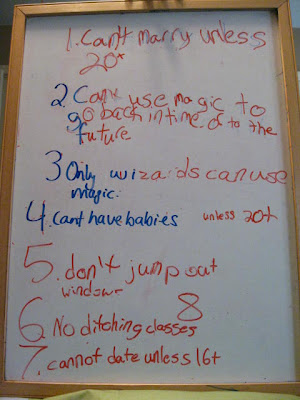 1. Can't marry unless
20+
2. Can't use magic to
go back in time or to the
future
3 Only wizards can use
magic.
4. cant have babies unless 20+
5. don't jump out
windows
8
6 No ditching classes
7. cannot date unless 16+